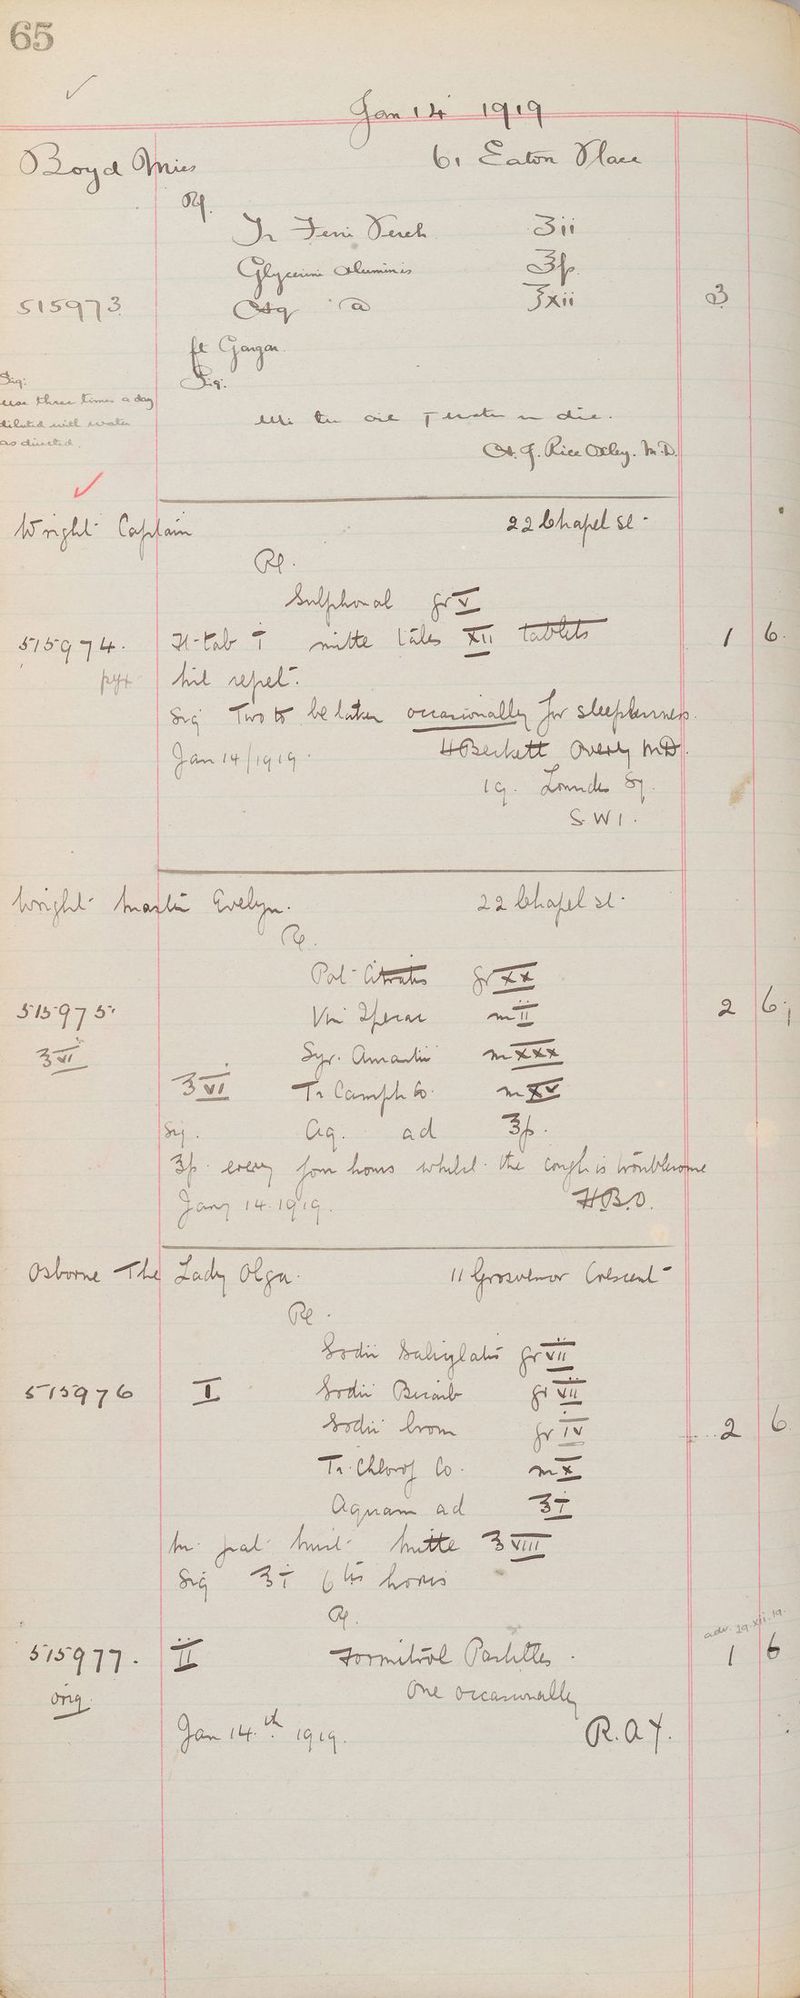 65
Jan 14 1919
Boyd Miss 61 Eaton Place
Rx.
Tr Ferri Perch ʒii
Glycerini Aluminis ℥ſs
515973 Aq ad ℥xii 3
ft Gargar
Sig: Sig:
use three times a day
diluted with water
as directed.
ter die.
A. J. Rice Oxley. M.D.
Wright Captain 22 Chapel St.
Rx.
Sulphonal gr V
515974. Ft tab i mitte tales XII tablets 1 6.
pyx nil repet.
Sig Two to be taken occasionally for sleeplessness.
Jan 14/1919. H Beckett Overy MD.
19. Lowndes Sq.
S W 1.
Wright Master Evelyn. 22 Chapel St.
Rx.
Pot Citratis gr XX
515975. Vini Ipecac m II 2 6
℥VI Syr. Aurantii m XXX
℥VI Tr Camph Co. m XV
Sig. Aq. ad ℥ſs.
℥ſs every four hours whilst the cough is troublesome
Jany 14 1919. H.B.O.
Osborne The Lady Olga. 11 Grosvenor Crescent
Rx.
Sodii Salicylatis gr VII
515976 I Sodii Bicarb gr VII
Sodii brom gr IV 2 6
Tr. Chlorof Co. m X
Aquam ad ℥i
M. mist. mitte ℥VIII
Sig ℥i 6tis horis
Rx. adv. 29.xii.19.
515977. II Formitrol Pastilles. 1 6
orig. One occasionally
Jan 14.th 1919. R.A.Y.